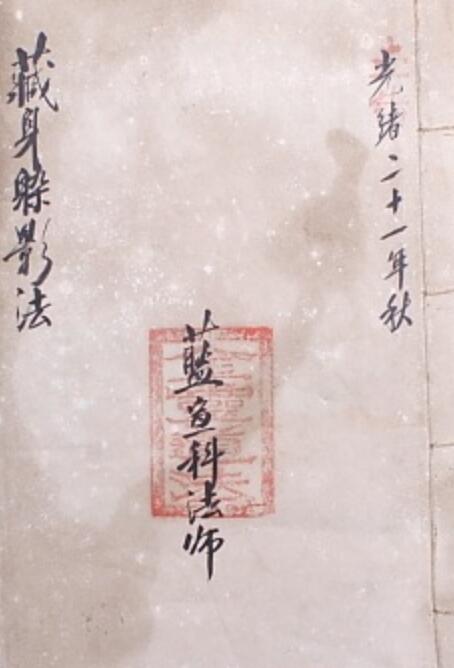 光绪二十一年秋
藍魚科法师
藏身躲影法